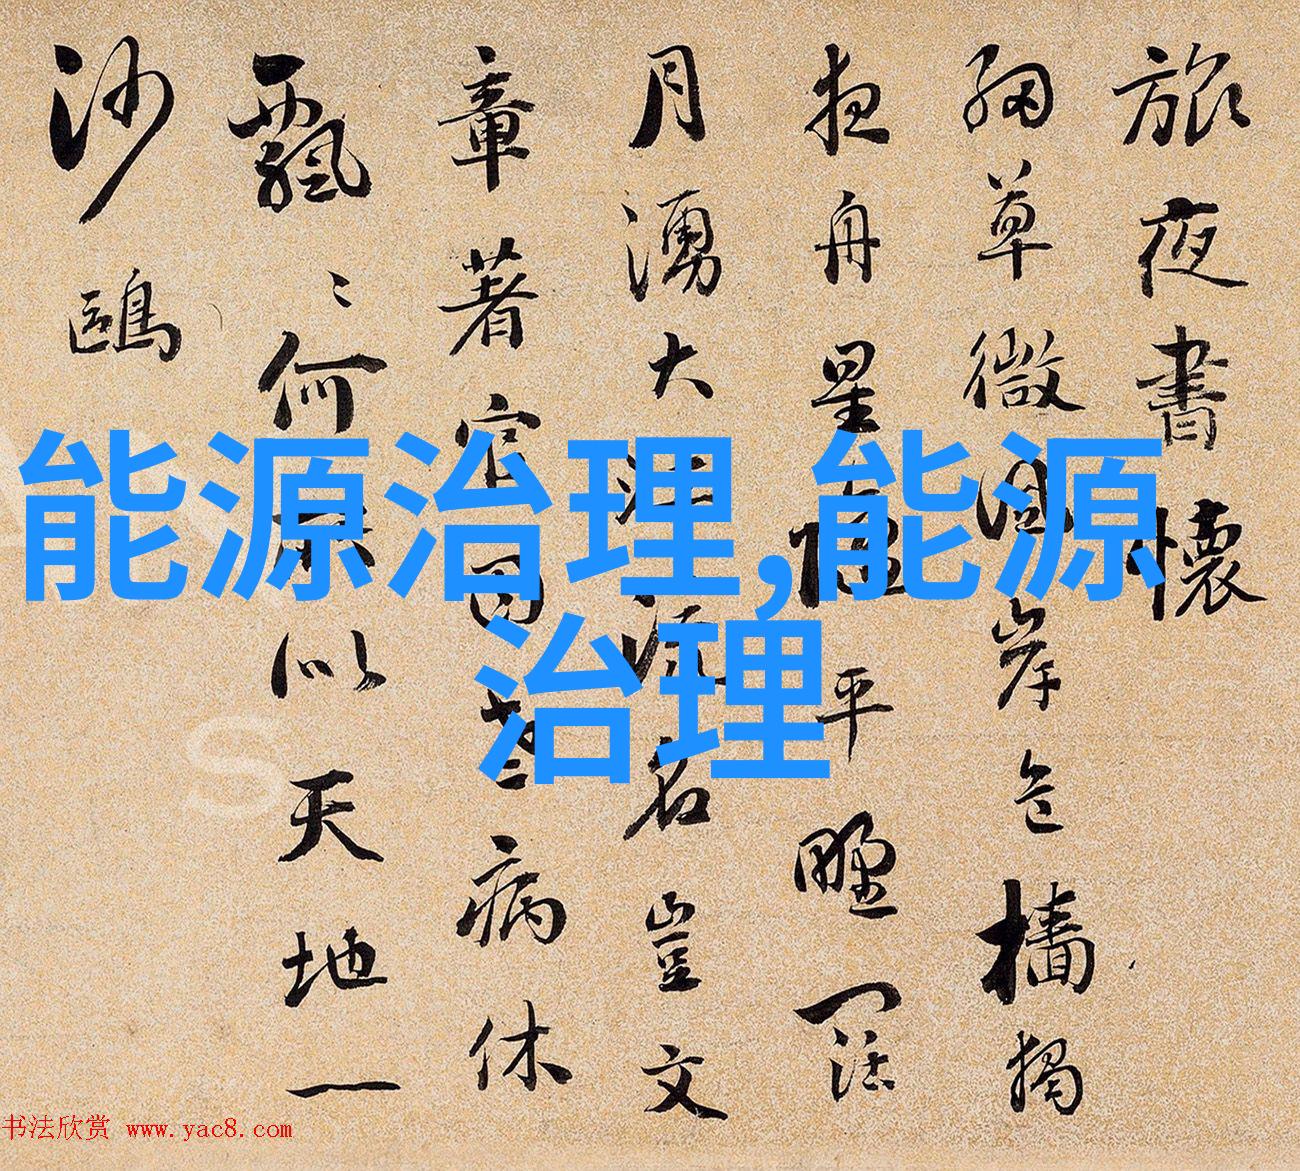 旅夜書懷
細草微風岸危檣獨
夜舟星垂平野闊
月湧大江流名豈文
章著官因老病休
飄〻何所似天地一
沙鷗
能源治理,能源
治理
S
书法欣赏 www.yac8.com